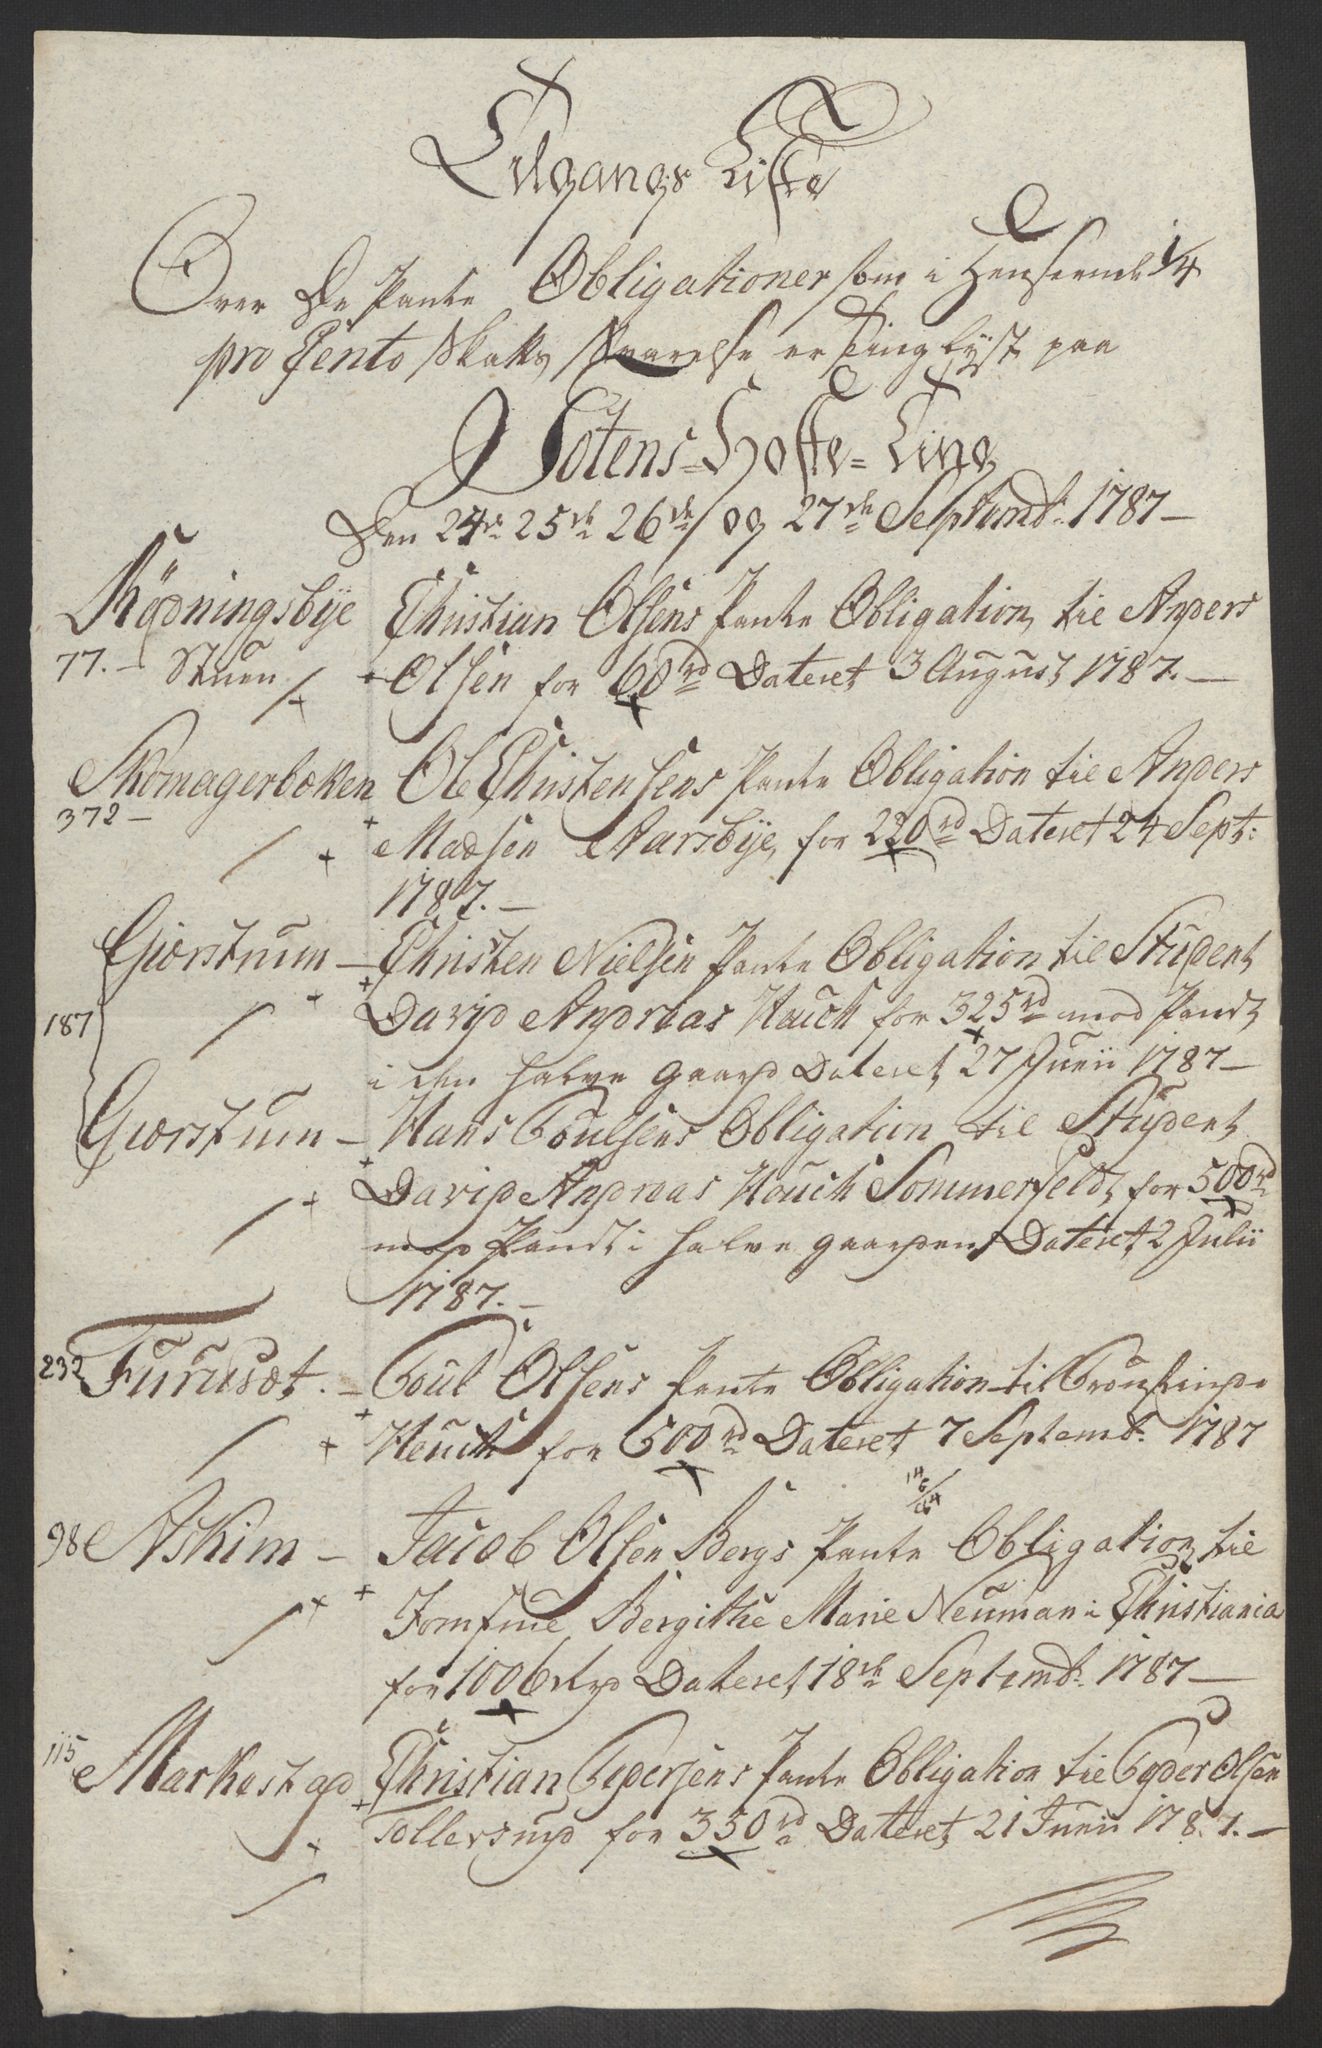 Udgangs Liste
Over De Pante Obligationer som i Henseende 1/4
pro Cento Skats Svarelse er Tinglyst paa
Totens Høste-Ting
Den 24de 25de 26de og 27de Septembr. 1787 —
Rødningsbye Christian Olsens Pante Obligation til Anders
77. – Stuen Olsen for 60 rd Dateret 3 August 1787. —
Skomagerbakken Ole Christensens Pante Obligation til Anders
372 – Madsen Narsbye, for 220 rd Dateret 24 Sept:
1787. —
Giørstrum — Christen Nielsen Pante Obligation til Student
187 David Andreas Hauch for 325 rd mod Pandt
i den halve gaard Dateret 27 Junii 1787 —
Giørstum — Hans Poulsens Obligation til Student
David Andreas Houch Sommerfeldt for 500 rd
mod Pandt i halve gaarden Dateret 2 Julii
1787. —
232 Furusæt. — Poul Olsens Pante Obligation til
Houch for 500 rd Dateret 7 Septembr. 1787
98 Askim — Jacob Olsen Bergs Pante Obligation til
Jomfrue Bergithe Marie Neuman i Christiania
for 100 Dateret 18de Septembr. 1787 —
115 Markestad Christian Pedersens Pante Obligation til Peder Olsen
Tollersrud for 350 rd Dateret 21 Junii 1787. —